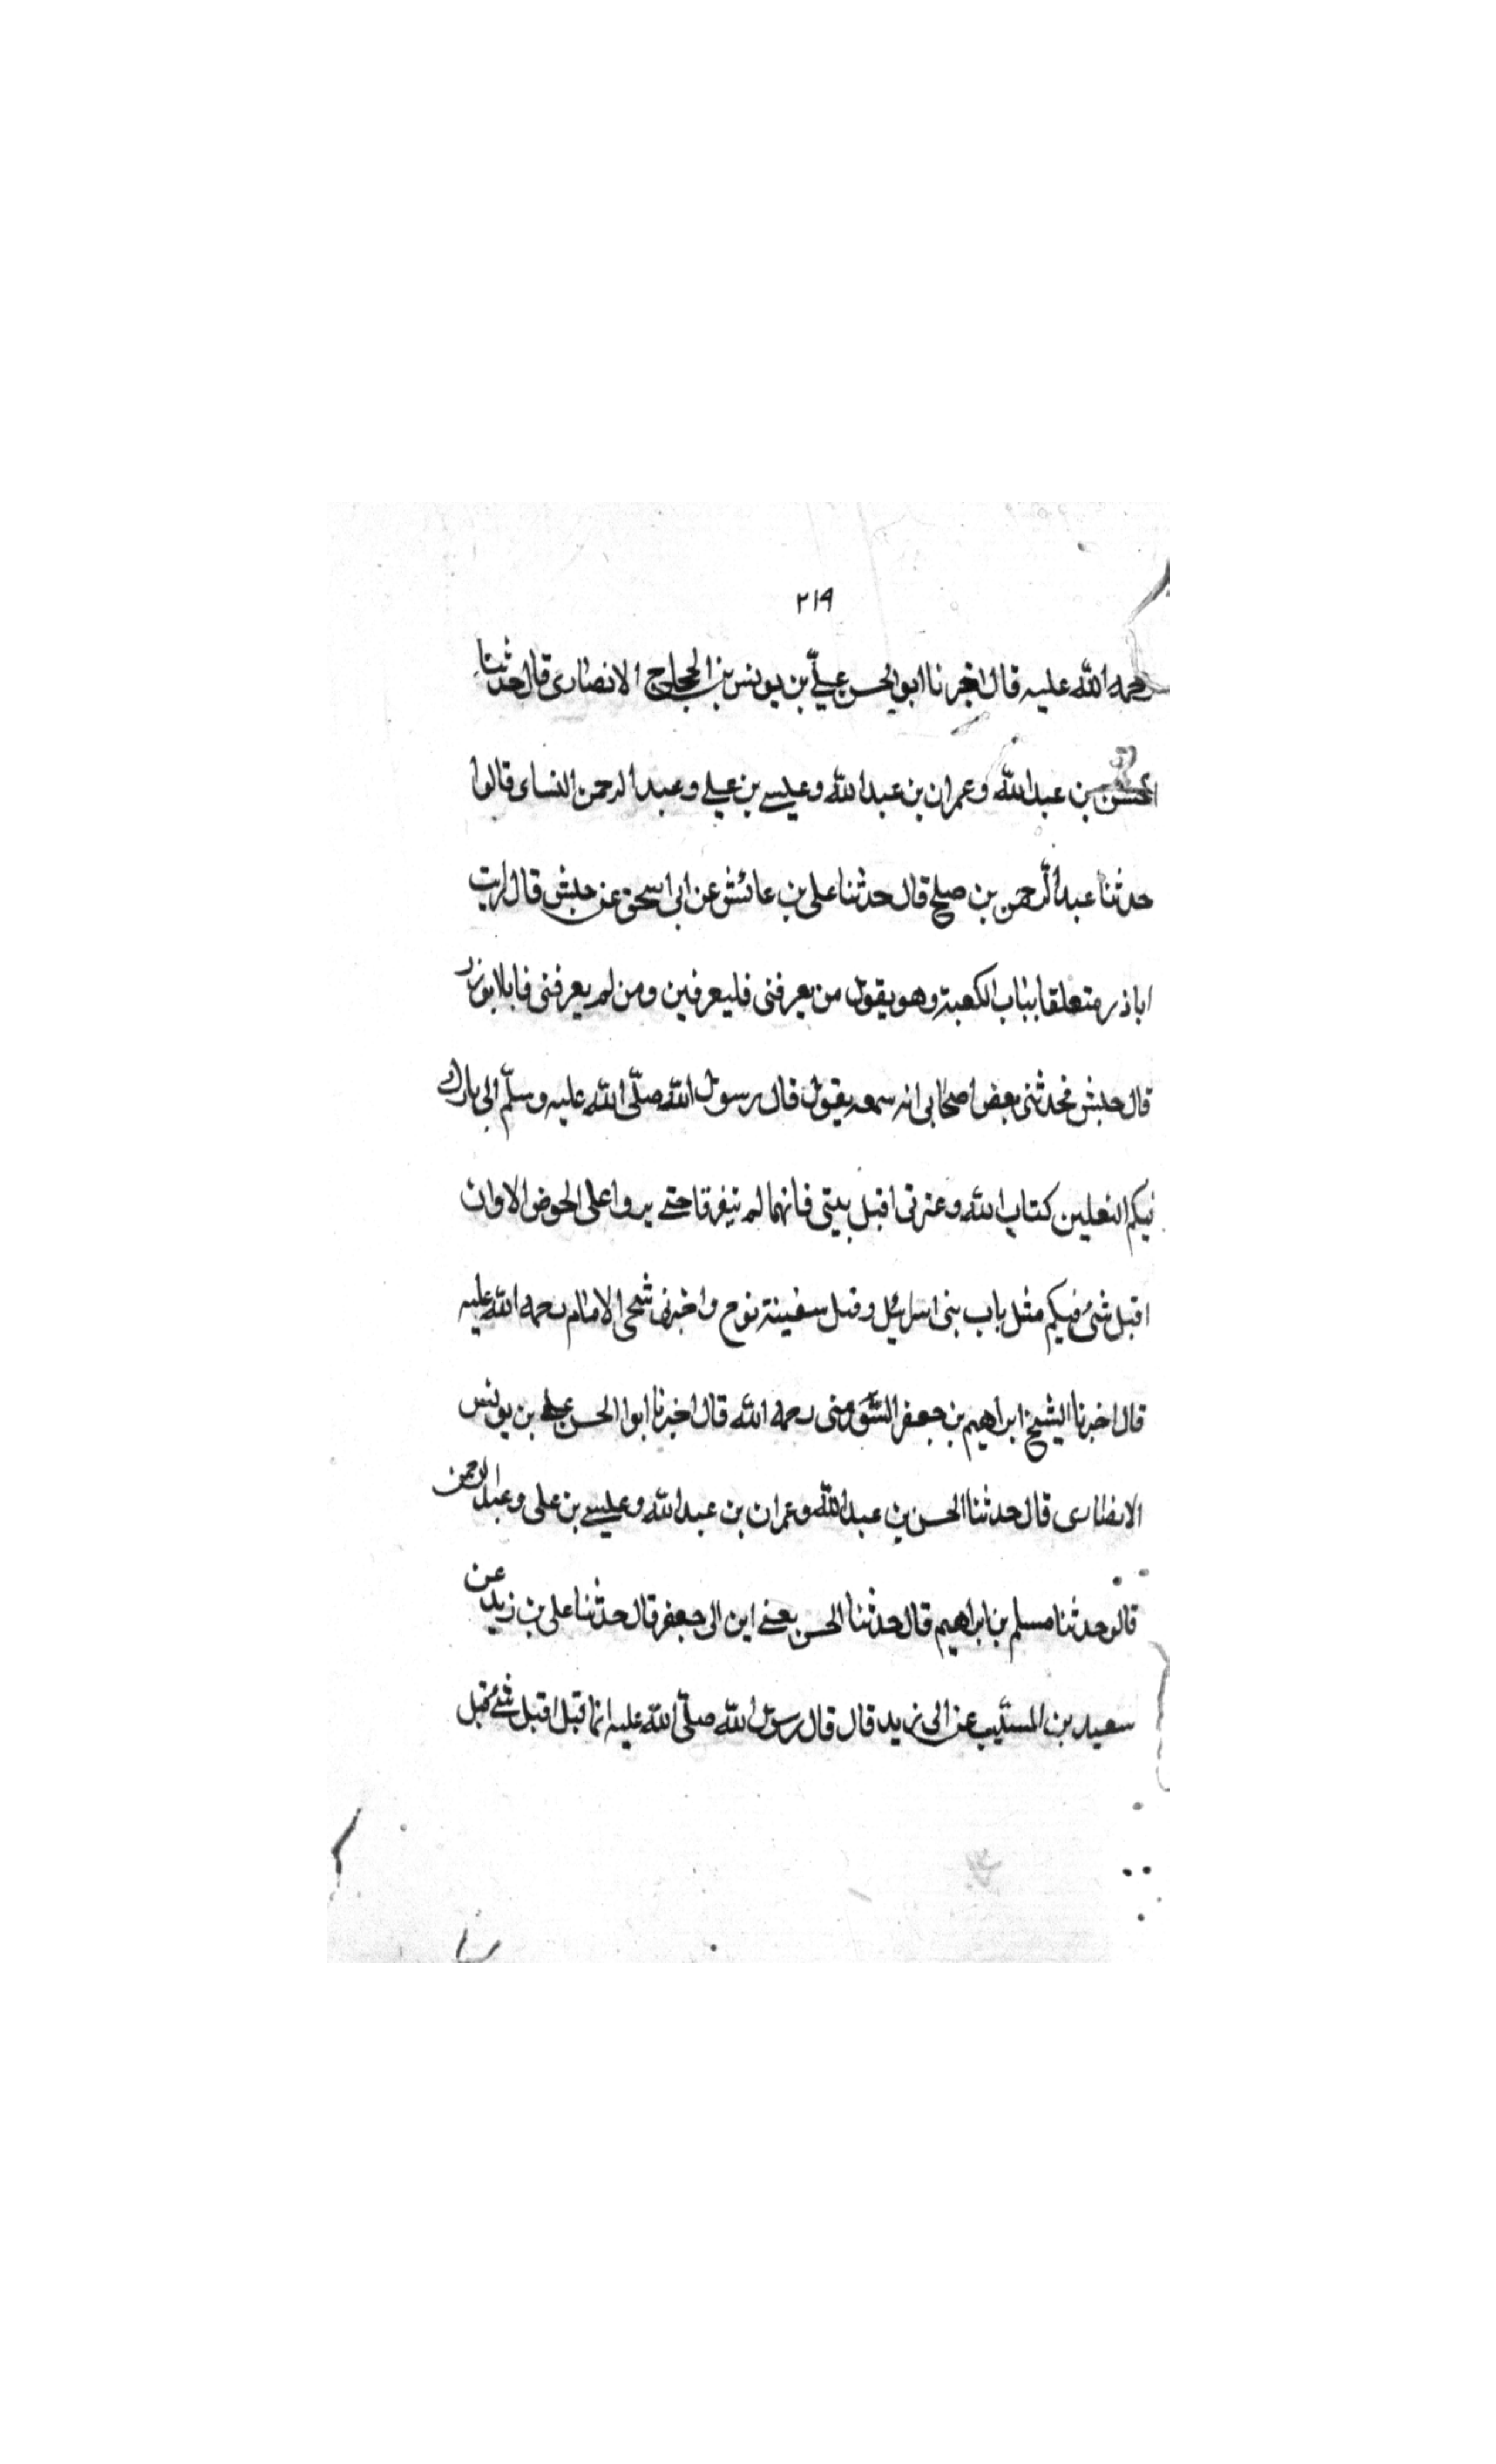 ٢١٩
رحمه الله عليه قال اخبرنا ابو الحسن علیّ بن يونس بن الحجاج الانصاری قال حدثنا
الحسن بن عبد الله وعمران بن عبد الله وعیسے بن علے وعبد الرحمن النساى قالوا
حدثنا عبد الرحمن بن صلح قال حدثنا على بن عائش عن ابى اسحق عن حبش قال رايت
اباذر متعلقا بباب الكعبة وهو يقول من يعرفنى فليعرفين ومن لم يعرفنى فا بوذر
قال حبش فحدثنى بعض اصحابى انه سمعه يقول قال رسول الله صلّى الله عليه وسلّم الى تارك
فيكم الثعلين كتاب الله وعترتى اقبل بيتى فانهما لم يتفرقا حتے يروا على الحوض الا وان
اقبل شئ فيكم مثل باب بنى اسرائيل ومثل سفينة نوح واخبرنى شحى الامام رحمه الله عليه
قال اخبرنا الشيخ ابراهيم بن جعفر الشومنى رحمه الله قال اخبرنا ابوا الحسن علے بن يونس
الانصارى قال حدثنا الحسن بن عبد الله وعمران بن عبد الله وعیسے بن على وعبد الرحمن
قالو حدثنا مسلم بن ابراهيم قال حدثنا الحسن يعنے ابن الى جعفر قال حدثنا على بن زيد عن
سعيد بن المسيّب عن الى زيد قال قال رسول الله صلّى الله عليه انما قبل اقبل شئ مثل